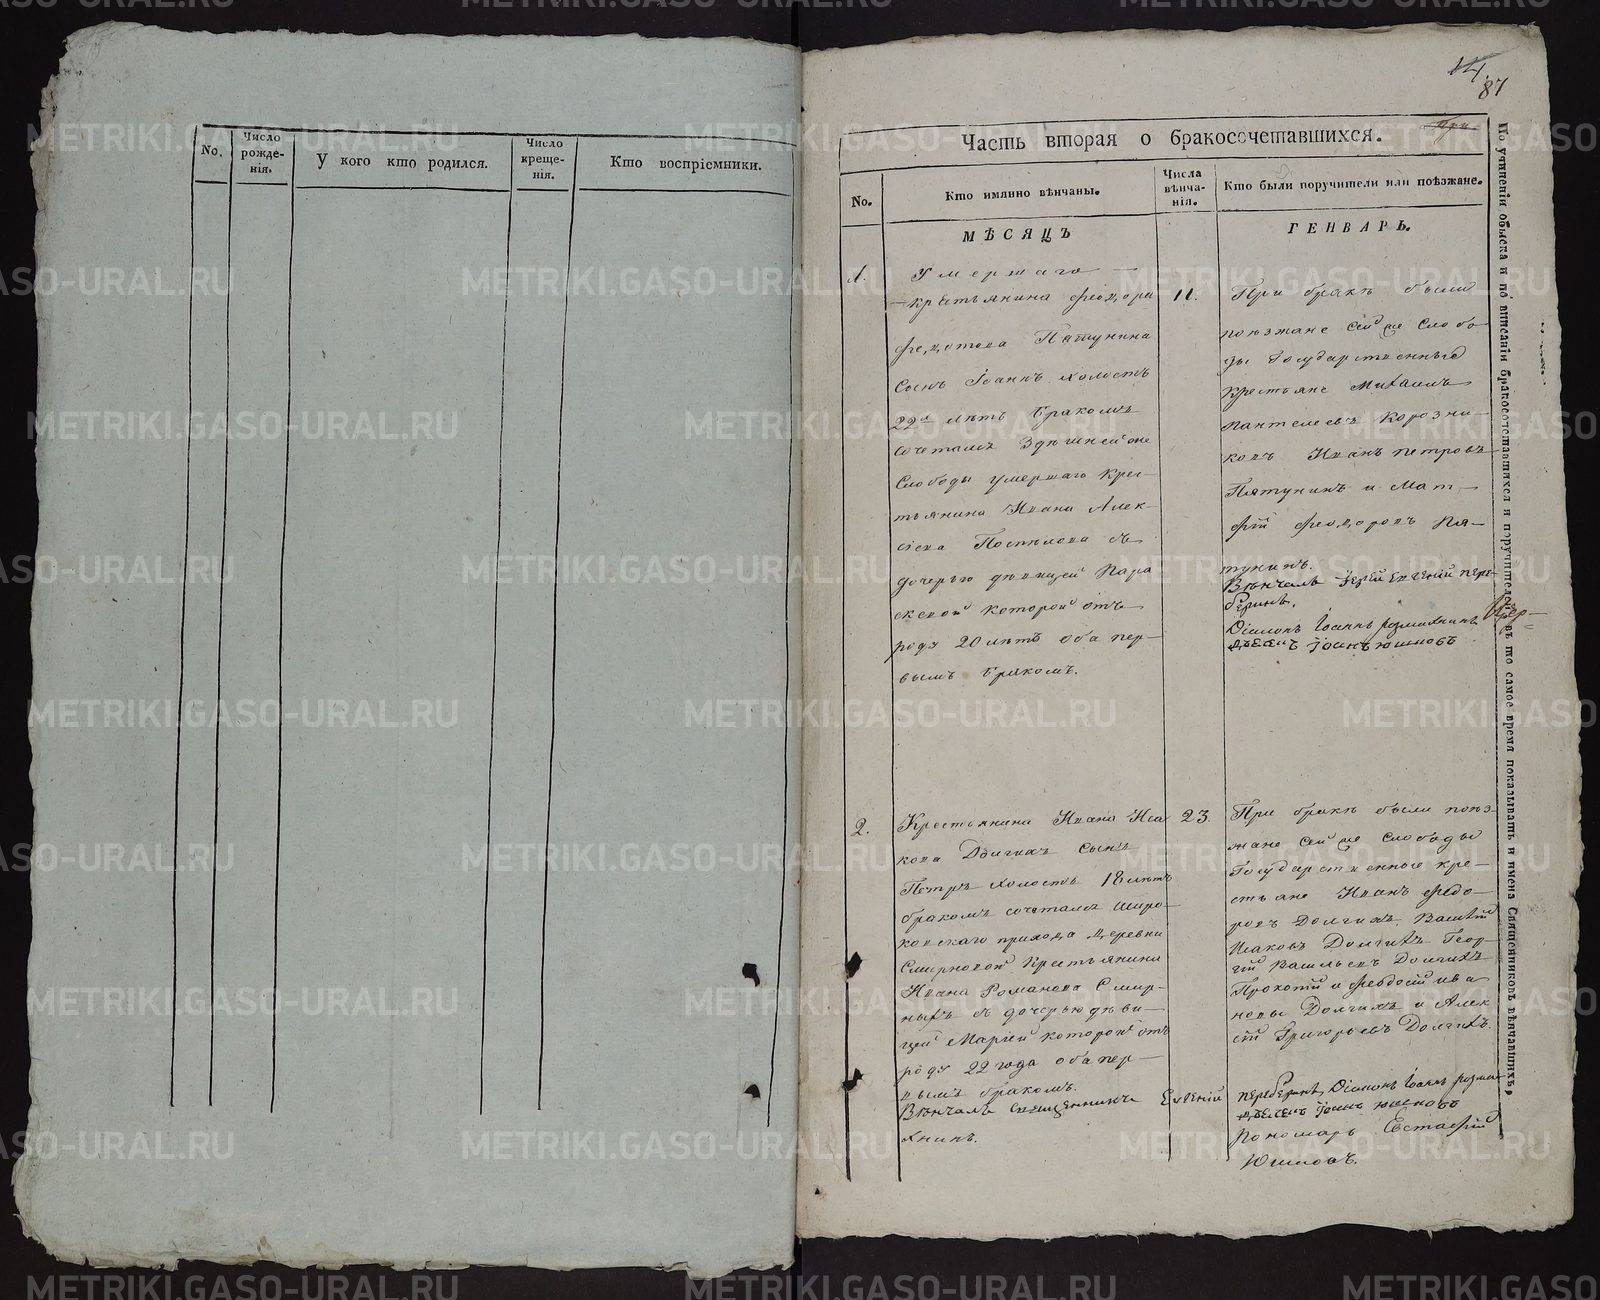 No.
Число рожде-нія.
У кого кто родился.
Число креще-нія.
Кто воспріемники.
14
87
Часть вторая о бракосочетавшихся.
No.
Кто имянно вѣнчаны.
Числа вѣнча-нія.
Кто были поручители или поѣзжане.
МѢСЯЦЪ
ГЕНВАРЬ.
1.
Умершаго
крестьянина Феодора
Федотова Пятунина
Сынъ Іоаннъ холостъ
22 лѣтъ бракомъ
сочетался Здѣшней же
Слободы умершаго Крес-
тьянина Ивана Алек-
сіева Поспѣлова съ
дочерью дѣвицей Пара
скевой которой отъ
роду 20 лѣтъ оба пер-
вымъ бракомъ.
11.
При бракѣ были
поѣзжане сей же Слобо
ды Государственные
крестьяне Михаилъ
Пантелеевъ Корзни-
ковъ Иванъ Петровъ
Пятунинъ и Мат-
фій Феодоровъ Пя-
тунинъ.
Вѣнчалъ Іерей Евгеній пере-
беринъ.
Діаконъ Іоаннъ
Іоаннъ Юшковъ
2.
Крестьянина Ивана Иса
кова Долгихъ сынъ
Петръ холостъ 18 лѣтъ
бракомъ сочетался широ-
ковскаго прихода Деревни
Смирновой Крестьянина
Ивана Романова Смир-
ныхъ съ дочерью дѣви-
цей Маріей которой отъ
роду 22 года оба пер-
вымъ бракомъ.
Вѣнчалъ священникъ Евгеній
23.
При бракѣ были поѣз-
жане сей же Слободы
Государственные кре-
стьяне Иванъ Федо-
ровъ Долгихъ Василій
Исаковъ Долгихъ Геор-
гій Васильевъ Долгихъ
Прокопій и Феодосій Ива
новы Долгихъ и Алек
сій Григорьевъ Долгихъ.
переберинъ, Діаконъ Іоаннъ
Іоаннъ Юшковъ
Пономарь Евстафій
Юшковъ.
По учиненіи обыска и по вписаніи бракосочетавшихся и поручителей въ то самое время показывать и имена Священниковъ вѣнчавшихъ,
METRIKI.GASO-URAL.RU